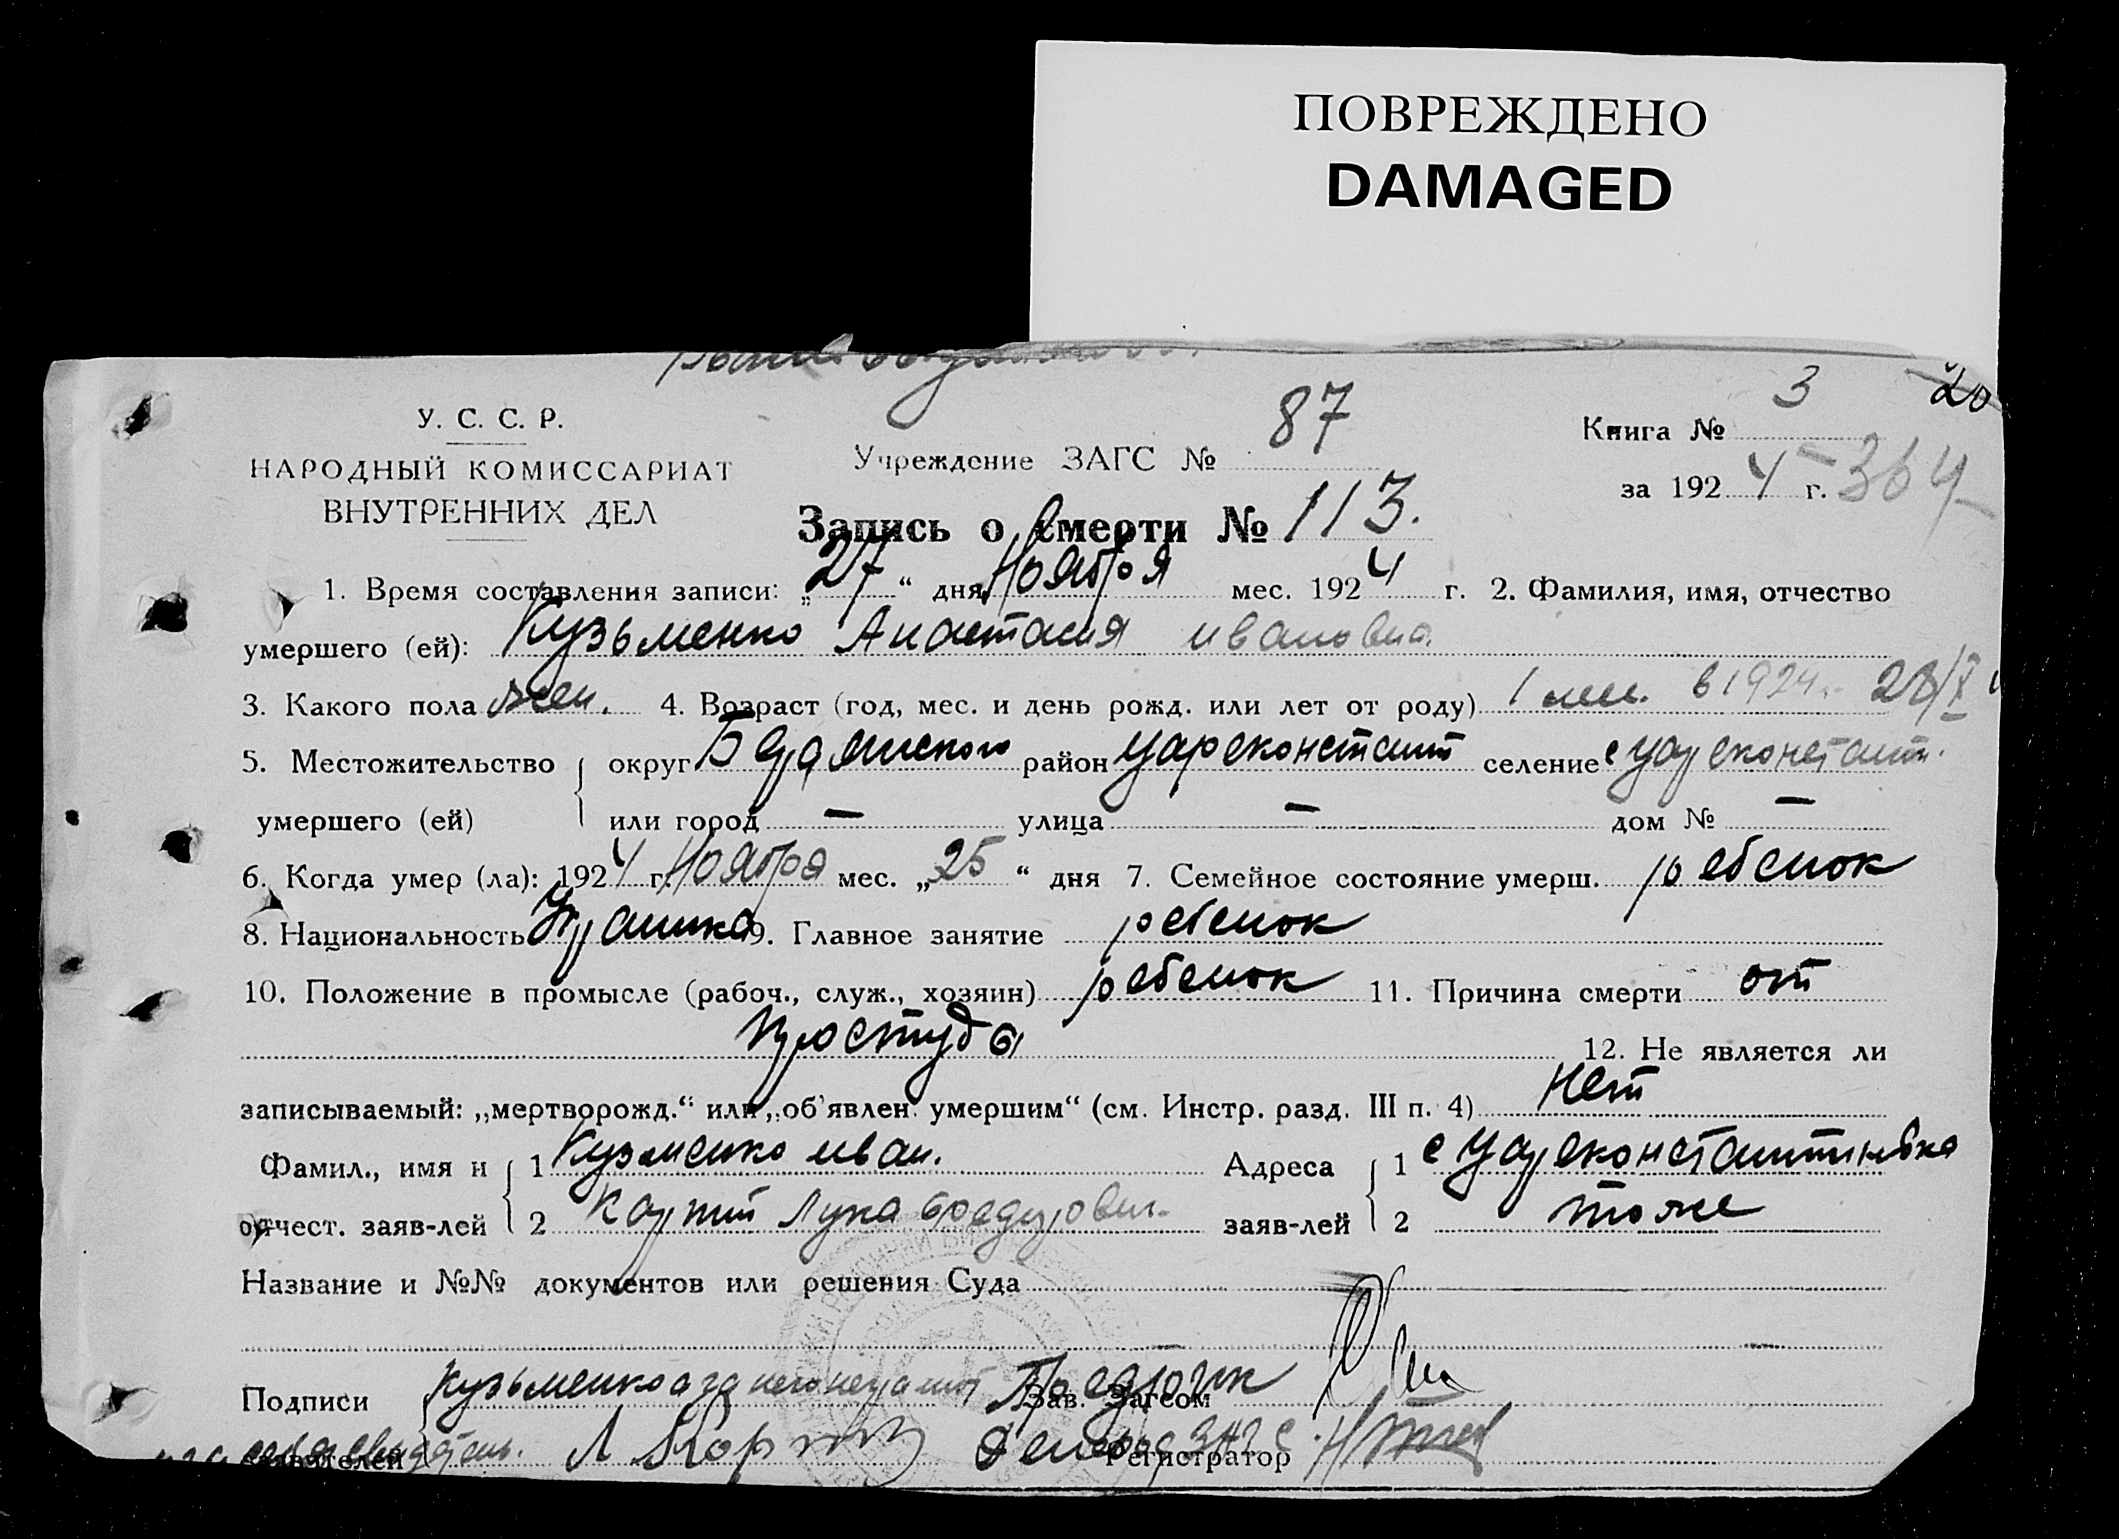 ПОВРЕЖДЕНО
DAMAGED
У. С. С. Р.
НАРОДНЫЙ КОМИССАРИАТ
ВНУТРЕННИХ ДЕЛ
Учреждение ЗАГС № 87
Книга № 3
20
за 1924 г.
364
Запись о смерти № 113.
1. Время составления записи: „27“ дня Ноября мес. 1924 г. 2. Фамилия, имя, отчество
умершего (ей): Кузьменко Анастасия ивановна.
3. Какого пола жен. 4. Возраст (год, мес. и день рожд. или лет от роду) 1 мес. в 1924 28/X
5. Местожительство округ Бердянского район Цареконстант селение с Цареконстант.
умершего (ей) или город — улица — дом № —
6. Когда умер (ла): 1924 г. Ноября мес. „25“ дня 7. Семейное состояние умерш. ребенок
8. Национальность 9. Главное занятие ребенок
10. Положение в промысле (рабоч., служ., хозяин) ребенок 11. Причина смерти от
простуды 12. Не является ли
записываемый: „мертворожд.“ или „об'явлен. умершим“ (см. Инстр. разд. III п. 4) Нет
Фамил., имя и 1 Кузменко иван. Адреса 1 с Цареконстантиновка
отчест. заяв-лей 2 Лука заяв-лей 2 тоже
Название и №№ документов или решения Суда
Подписи Кузьменко а за него Зав. Загсом
Л Регистратор